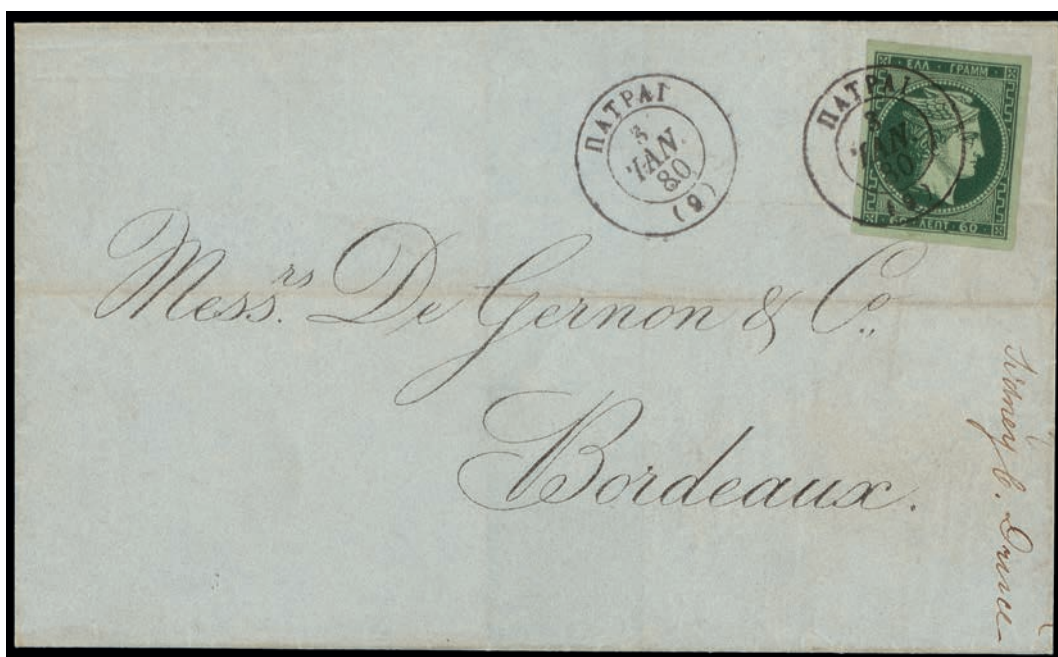 ΠΑΤΡΑΙ
3
ΊΑΝ.
80
(9)
ΠΑΤΡΑΙ
3
ΊΑΝ.
80
(9)
ΕΛΛ · ΓΡΑΜΜ ·
60 · ΛΕΠΤ · 60 ·
Messrs. De Gernon & Co.,
Bordeaux.